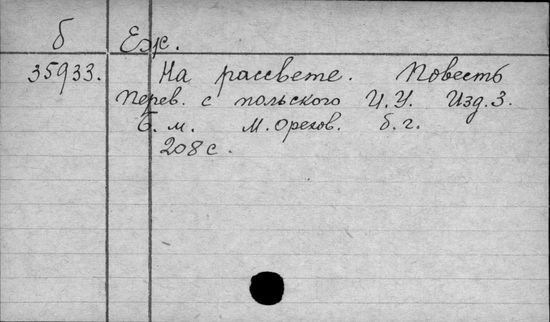 б Еж.
35933. На рассвете. Повесть
Перев. с польского И. У. Изд. 3.
Б. м. М. Орехов. б. г.
208 с.